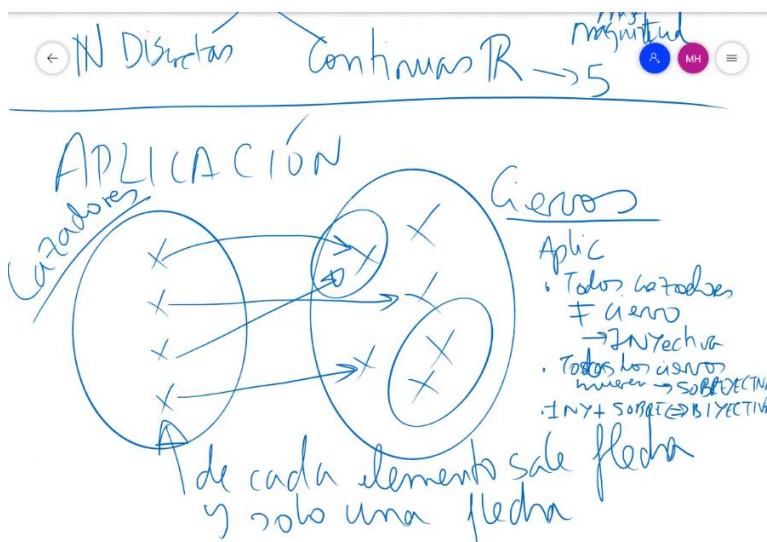 magnitud
ℕ Discretas Continuas ℝ → 5
MH
APLICACIÓN
Cazadores
Ciervos
Aplic
· Todos cazadores
≠ ciervo
→ INYectiva
· Todos los ciervos
mueren → SOBREYECTIVA
· INY + SOBRE ⇔ BIYECTIVA
de cada elemento sale flecha
y solo una flecha